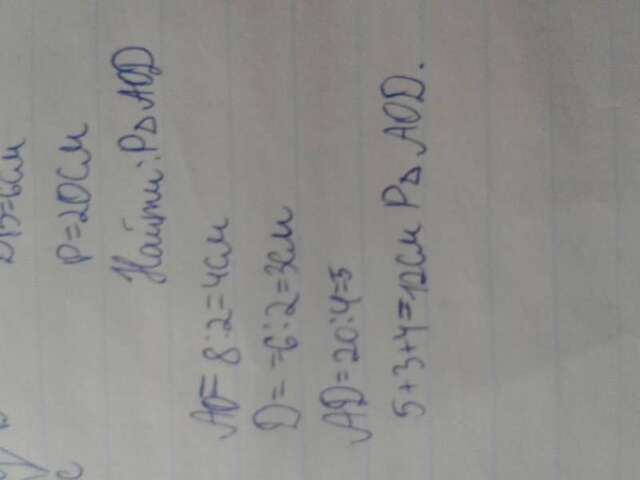 =6см
P=20см
Найти: P△ AOD
AO= 8:2=4см
D= =6:2=3см
AD=20:4=5
5+3+4=12см P△ AOD.
c